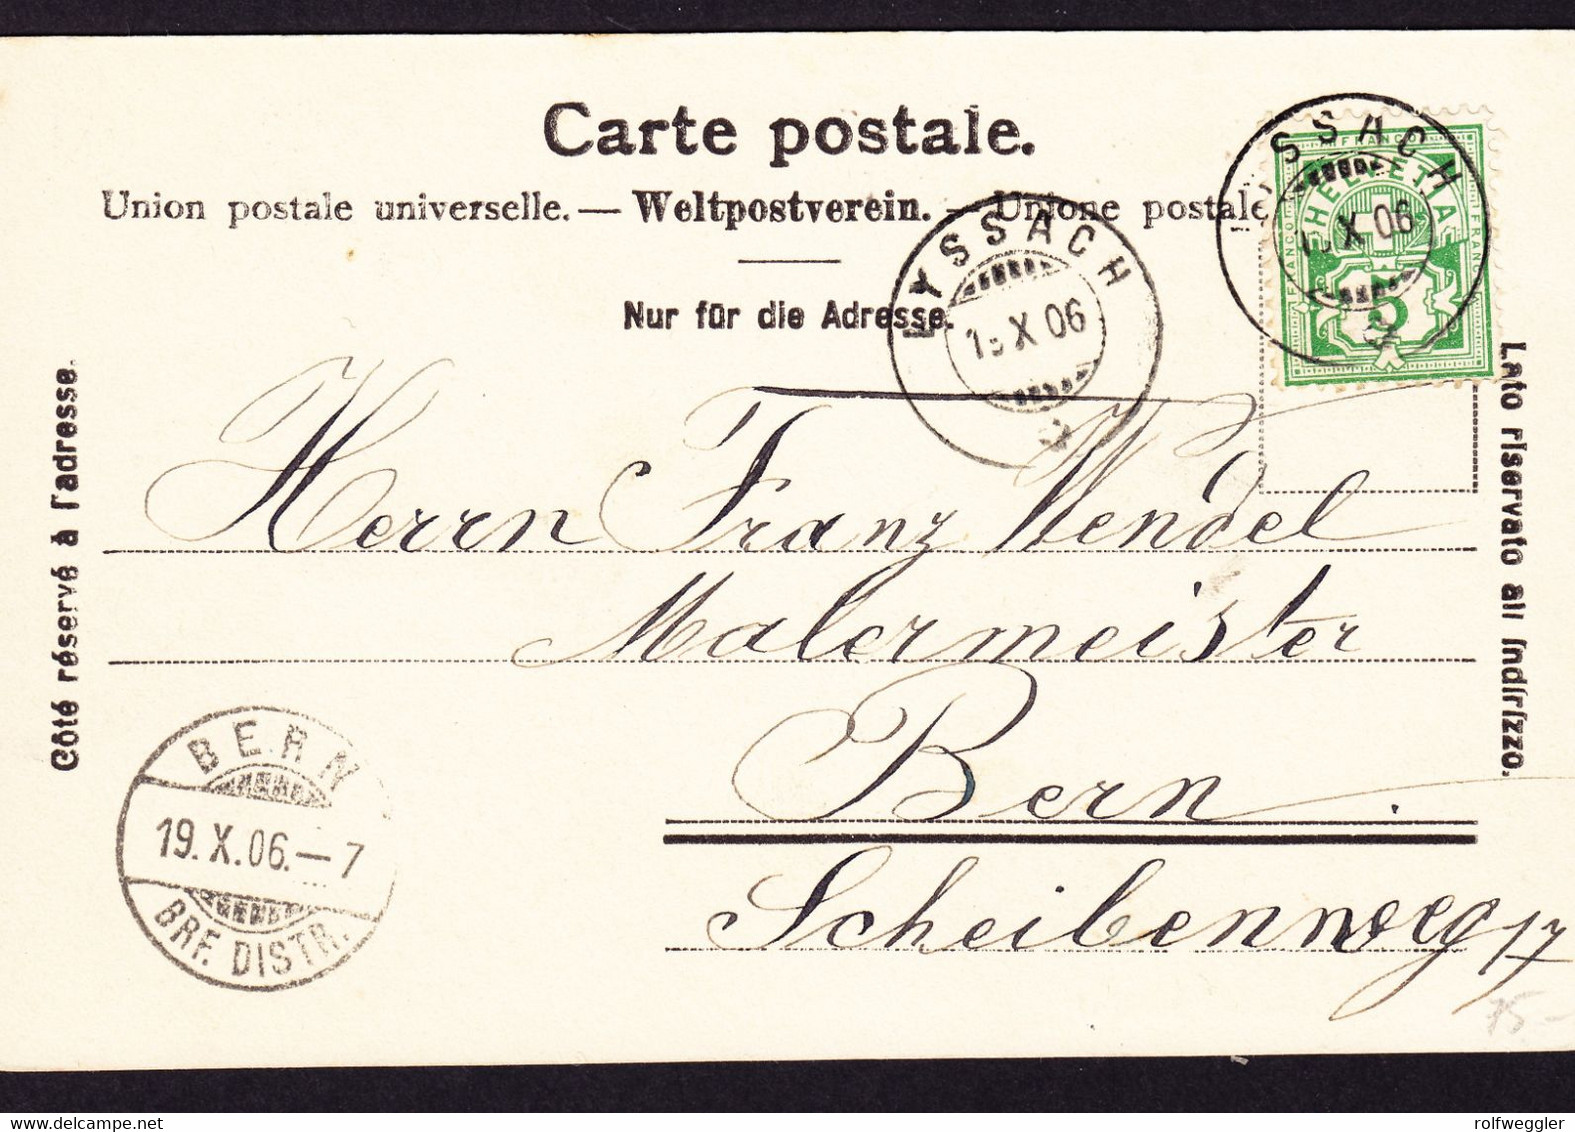 Carte postale.
Union postale universelle. — Weltpostverein. — Unione postale
Nur für die Adresse.
Côté réservé à l'adresse.
Lato riservato all'indirizzo.
FRANCO HELVETIA FRANCO
5
LYSSACH
X 06
LYSSACH
X 06
Herrn Franz Wendel
Malermeister
Bern.
Scheibenweg 17
BERN
19. X. 06. — 7
BRF. DISTR.
75.-
rolfweggler